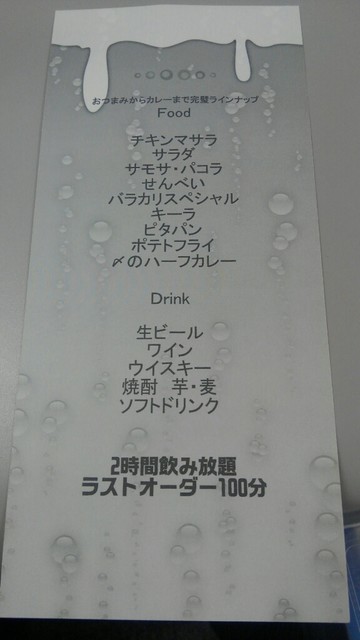 おつまみからカレーまで完璧ラインナップ
Food
チキンマサラ
サラダ
サモサ・パコラ
せんべい
バラカリスペシャル
キーラ
ピタパン
ポテトフライ
〆のハーフカレー
Drink
生ビール
ワイン
ウイスキー
焼酎 芋・麦
ソフトドリンク
2時間飲み放題
ラストオーダー100分